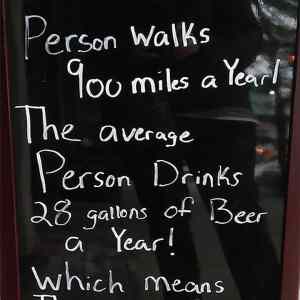 Person Walks
900 miles a Year!
The average
Person Drinks
28 gallons of Beer
a Year!
Which means